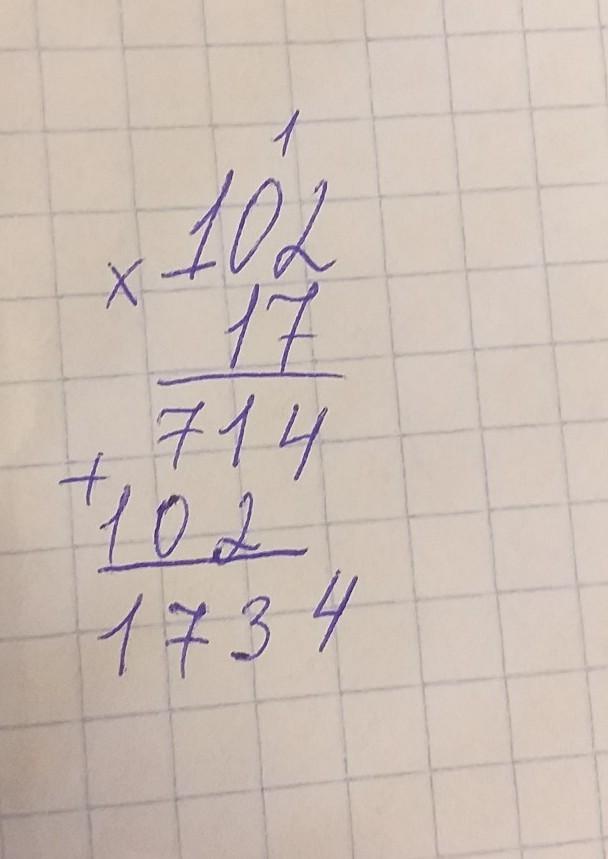 1
102
×
17
714
+
102
1734